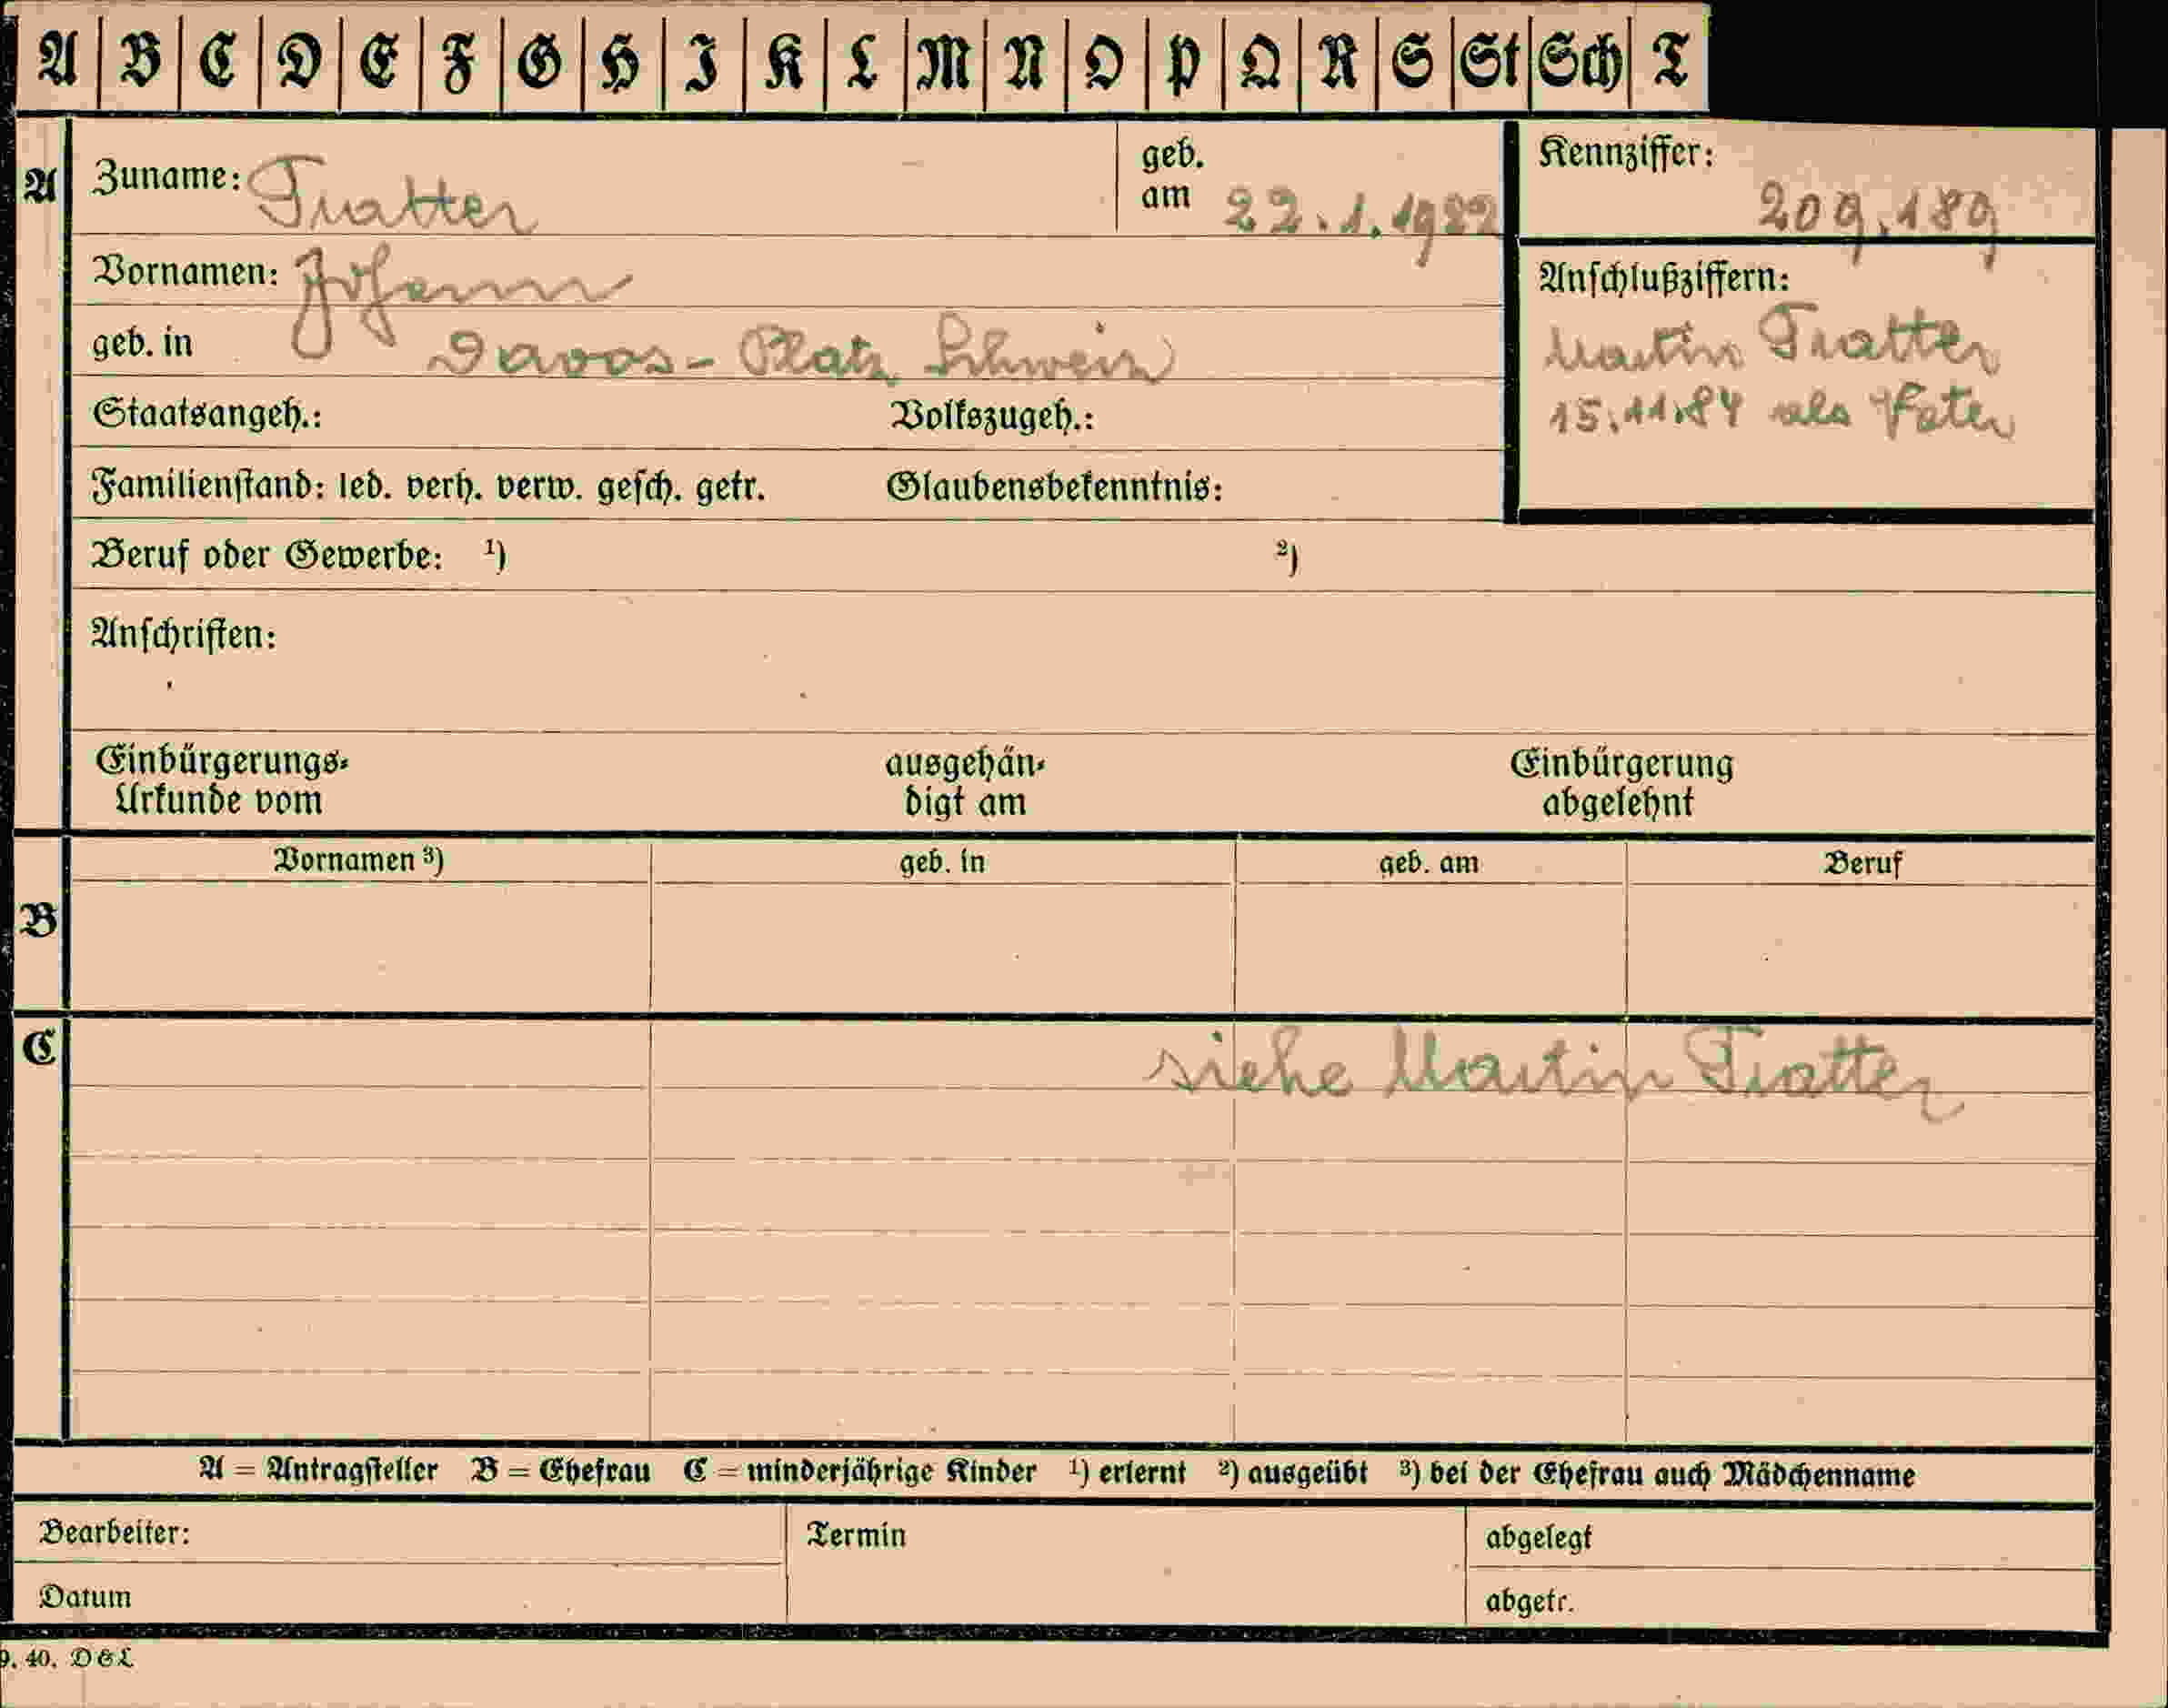 A B C D E F G H I K L M N O P Q R S St Sch T
A Zuname: Tratter geb. am 22.1.1922 Kennziffer: 209.189
Vornamen: Johann
geb. in Davos-Platz Schweiz
Anschlußziffern:
Martin Tratter
15.11.84 als Vater
Staatsangeh.: Volkszugeh.:
Familienstand: led. verh. verw. gesch. getr. Glaubensbekenntnis:
Beruf oder Gewerbe: ¹) ²)
Anschriften:
Einbürgerungs- ausgehän- Einbürgerung
Urkunde vom digt am abgelehnt
B Vornamen ³) geb. in geb. am Beruf
C siehe Martin Tratter
A = Antragsteller B = Ehefrau C = minderjährige Kinder ¹) erlernt ²) ausgeübt ³) bei der Ehefrau auch Mädchenname
Bearbeiter: Termin abgelegt
Datum abgetr.
9. 40. D & L